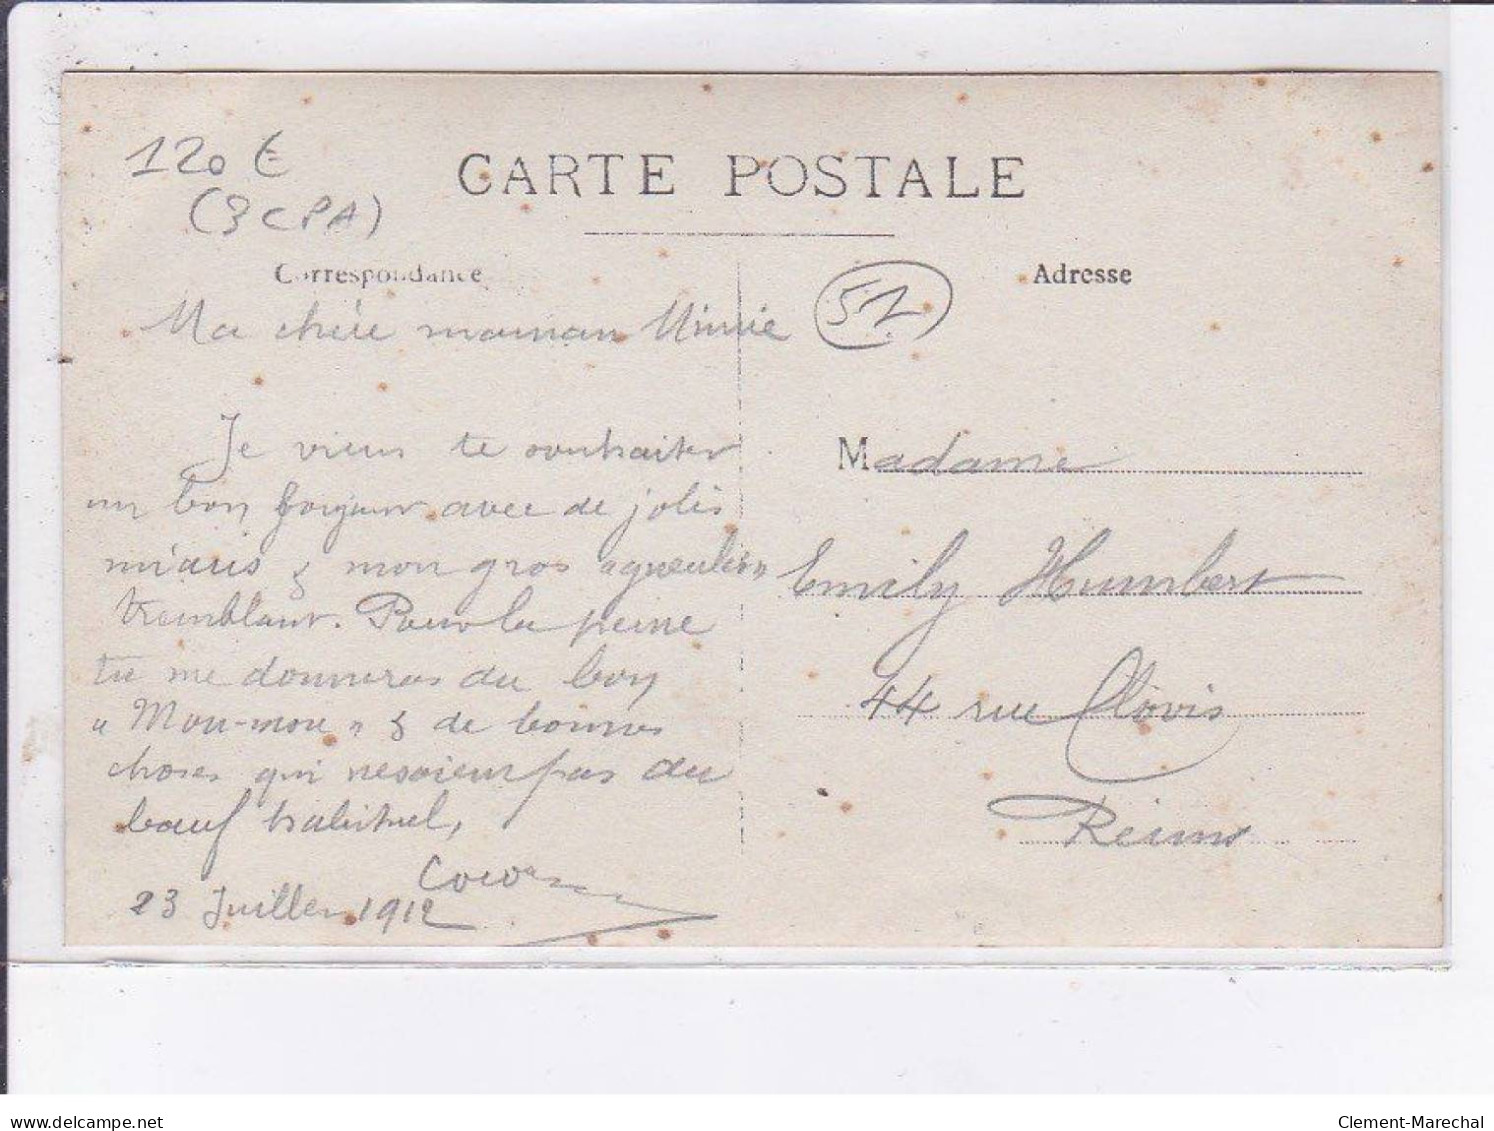 120 €
(3 CPA)
CARTE POSTALE
Correspondance
Adresse
51
Ma chère maman Mimie
Je viens te souhaiter
un bon avec de jolis
miaus & mon gros
tremblant. Pour la peine
tu me donneras du bon
" Mou-mou " & de bonnes
choses qui ne soient pas du
bœuf habituel,
Coco
23 Juillet 1912
Madame
Emily Humbert
44 rue Clovis
Reims
delcampe.net
Clement-Marechal